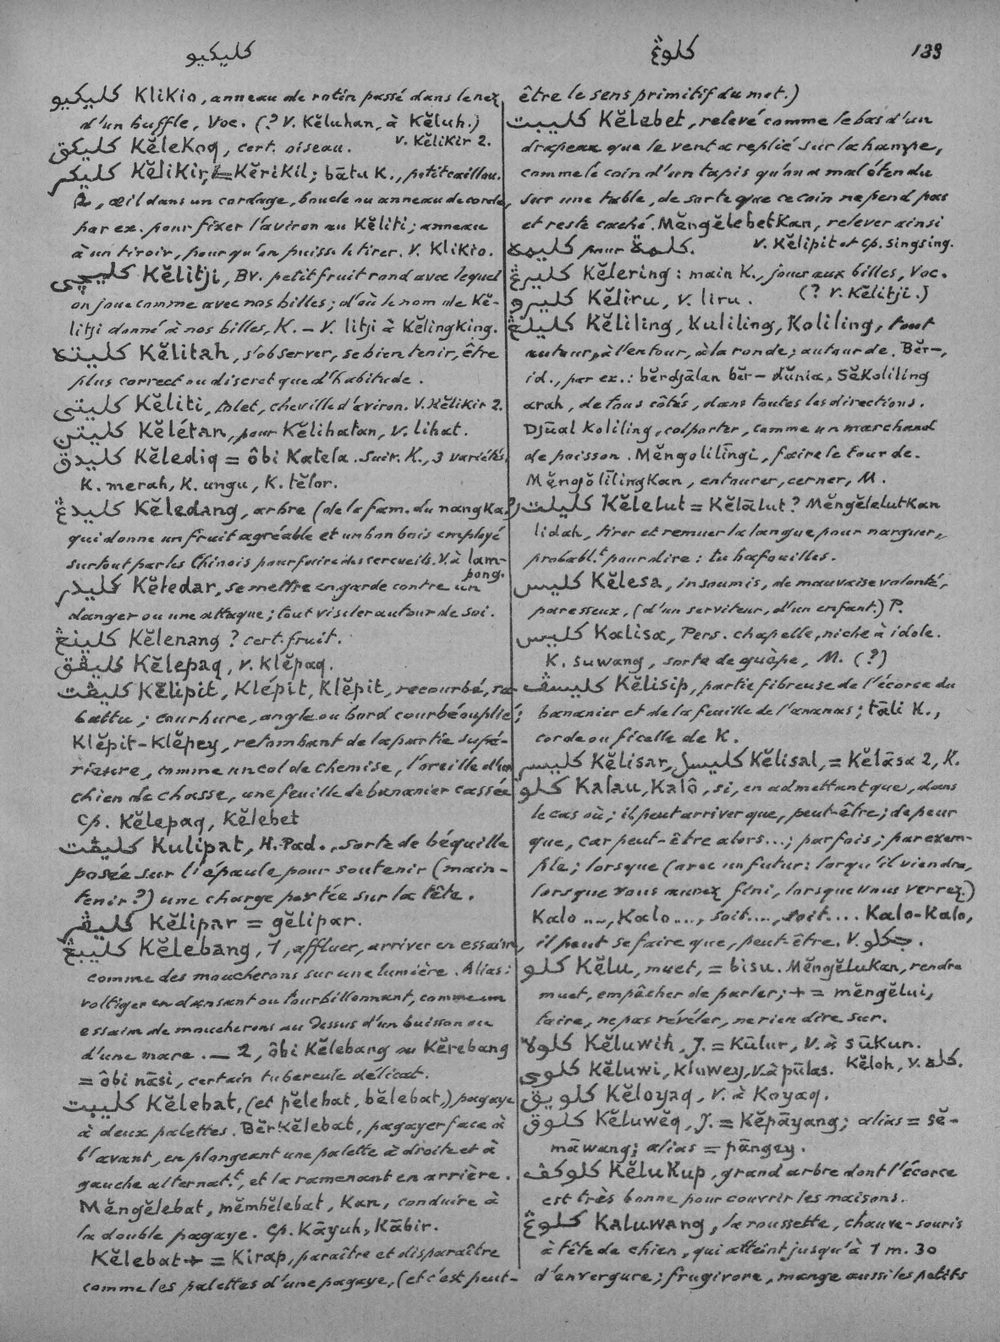 كليكيو
كلوڠ
139
كليكيو Klikio, anneau de rotin passé dans le nez
d'un buffle, Voc. (? V. Kĕluhan, à Kĕluh.)
كليكق Kĕlekoq, cert. oiseau. V. Kĕlikir 2.
كليكر Kĕlikir, Kĕrikil; bātu K., petit caillou.
2, œil dans un cordage, boucle ou anneau de corde,
par ex. pour fixer l'aviron au Kĕliti; anneau
à un tiroir, pour qu'on puisse le tirer. V. Klikio.
كليچي Kĕlitji, Bv. petit fruit rond avec lequel
on joue comme avec nos billes; d'où le nom de Kĕ-
litji donné à nos billes, K. – V. litji à Kĕlingking.
كليته Kĕlitah, s'observer, se bien tenir, être
plus correct ou discret que d'habitude.
كليتي Kĕliti, tolet, cheville d'aviron. V. Kĕlikir 2.
كليتن Kĕlétan, pour Kĕlihatan, V. lihat.
كليدق Kĕlediq = ôbi Katela. Suir. K., 3 variétés,
K. merah, K. ungu, K. tĕlor.
كليدڠ Kĕledang, arbre (de la fam. du nangka?)
qui donne un fruit agréable et un bon bois employé
surtout par les Chinois pour faire des cercueils. V. à lam-
pong.
كليدر Kĕledar, se mettre en garde contre un
danger ou une attaque; tout visiter autour de soi.
كلينڠ Kĕlenang ? cert. fruit.
كليڤق Kĕlepaq, v. klĕpaq.
كليڤت Kĕlipit, Klépit, Klĕpit, recourbé, ra-
battu; courbure, angle ou bord courbé ou plié;
Klĕpit-Klĕpey, retombant de la partie supé-
rieure, comme un col de chemise, l'oreille d'un
chien de chasse, une feuille de bananier cassée
Cp. Kĕlepaq, Kĕlebet
كليڤت Kulipat, H. Pad., sorte de béquille
posée sur l'épaule pour soutenir (main-
tenir?) une charge portée sur la tête.
كليڤر Kĕlipar = gĕlipar.
كليبڠ Kĕlebang, 1, affluer, arriver en essaim,
comme des moucherons sur une lumière. Alias:
voltiger en dansant ou tourbillonnant, comme un
essaim de moucherons au dessus d'un buisson ou
d'une mare. — 2, ôbi Kĕlebang ou Kĕrebang
= ôbi nāsi, certain tubercule délicat.
كليبت Kĕlebat, (et pĕlebat, bĕlebat,) pagaye
à deux palettes. Bĕrkĕlebat, pagayer face à
l'avant, en plongeant une palette à droite et à
gauche alternat.t, et la ramenant en arrière.
Mĕngĕlebat, mĕmbĕlebat, Kan, conduire à
la double pagaye. Cp. Kāyuh, Kābir.
Kĕlebat + = Kirap, paraître et disparaître
comme les palettes d'une pagaye, (et c'est peut-
être le sens primitif du mot.)
كليبت Kĕlebet, relevé comme le bas d'un
drapeau que le vent a replié sur la hampe,
comme le coin d'un tapis qu'on a mal étendu
sur une table, de sorte que ce coin ne pend pas
et reste caché. Mĕngĕlebetkan, relever ainsi
كليمه pour كلمة. V. Kĕlipit et Cp. singsing.
كليرڠ Kĕlering: main K., jouer aux billes, Voc.
كليرو Kĕliru, V. liru. (? V. Kĕlitji.)
كليلڠ Kĕliling, Kuliling, Koliling, tout
autour, à l'entour, à la ronde; autour de. Bĕr–,
id., par ex.: bĕrdjālan bĕr– dŭnia, Sĕkoliling
arah, de tous côtés, dans toutes les directions.
Djūal koliling, colporter, comme un marchand
de poisson. Mĕngolilīngi, faire le tour de.
Mĕngŏlīlingkan, entourer, cerner, M.
كليلت Kĕlelut = Kĕlālut? Mĕngĕlelutkan
lidah, tirer et remuer la langue pour narguer,
probabl.t pour dire: tu bafouilles.
كليس Kĕlesa, insoumis, de mauvaise volonté,
paresseux, (d'un serviteur, d'un enfant.) P.
كليس Kalisa, Pers. chapelle, niche à idole.
K. suwang, sorte de guêpe, M. (?)
كليسڤ Kĕlisip, partie fibreuse de l'écorce du
bananier et de la feuille de l'ananas; tāli K.,
corde ou ficelle de K.
كليسر Kĕlisar, كليسل Kĕlisal, = Kĕlāsa 2, K.
كلو Kalau, Kalô, si, en admettant que, dans
le cas où; il peut arriver que, peut-être; de peur
que, car peut-être alors...; parfois; par exem-
ple; lorsque (avec un futur: lorqu'il viendra,
lorsque vous aurez fini, lorsque vous verrez)
Kalo ..., Kalo ..., soit..., soit.... Kalo-Kalo,
il peut se faire que, peut-être. V. جكلو.
كلو Kĕlu, muet, = bisu. Mĕngĕlukan, rendre
muet, empêcher de parler; + = mĕngĕlui,
taire, ne pas révéler, ne rien dire sur.
كلوه Kĕluwih, J. = Kūlur, V. à sŭkun.
كلوي Kĕluwi, Kluwey, V. à pūlas. Kĕloh, V. كله.
كلويق Kĕloyaq, V. à Koyaq.
كلووق Kĕluwĕq, J. = Kĕpāyang; alias = sĕ-
māwang; alias = pāngey.
كلوكڤ Kĕlukup, grand arbre dont l'écorce
est très bonne pour couvrir les maisons.
كلوڠ Kaluwang, la roussette, chauve-souris
à tête de chien, qui atteint jusqu'à 1 m. 30
d'envergure; frugivore, mange aussi les petits